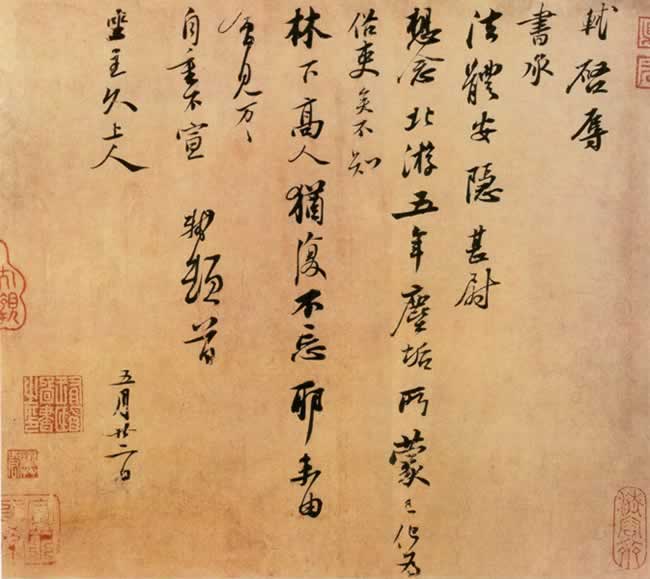 軾啓辱
書承
法體安隱甚尉
想念北游五年塵垢所蒙已化為
俗吏矣不知
林下高人猶復不忘耶未由
會見萬萬
自重不宣 軾頓首
坐主久上人
五月廿二日